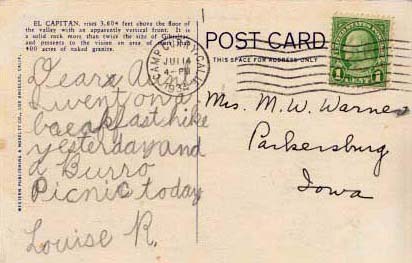 EL CAPITAN, rises 3,604 feet above the floor of
the valley with an apparently vertical front. It is
a solid rock more than twice the size of Gibraltar,
and presents to the vision an area of more than
400 acres of naked granite.
POST CARD
THIS SPACE FOR ADDRESS ONLY
CAMP CURRY, CALIF.
JUL 14
4-PM
1 CENT 1
Dear A
I went on a
breakfast hike
yesterday and
a Burro
Picnic today
Louise R.
Mrs. M. W. Warner
Parkersburg
Iowa